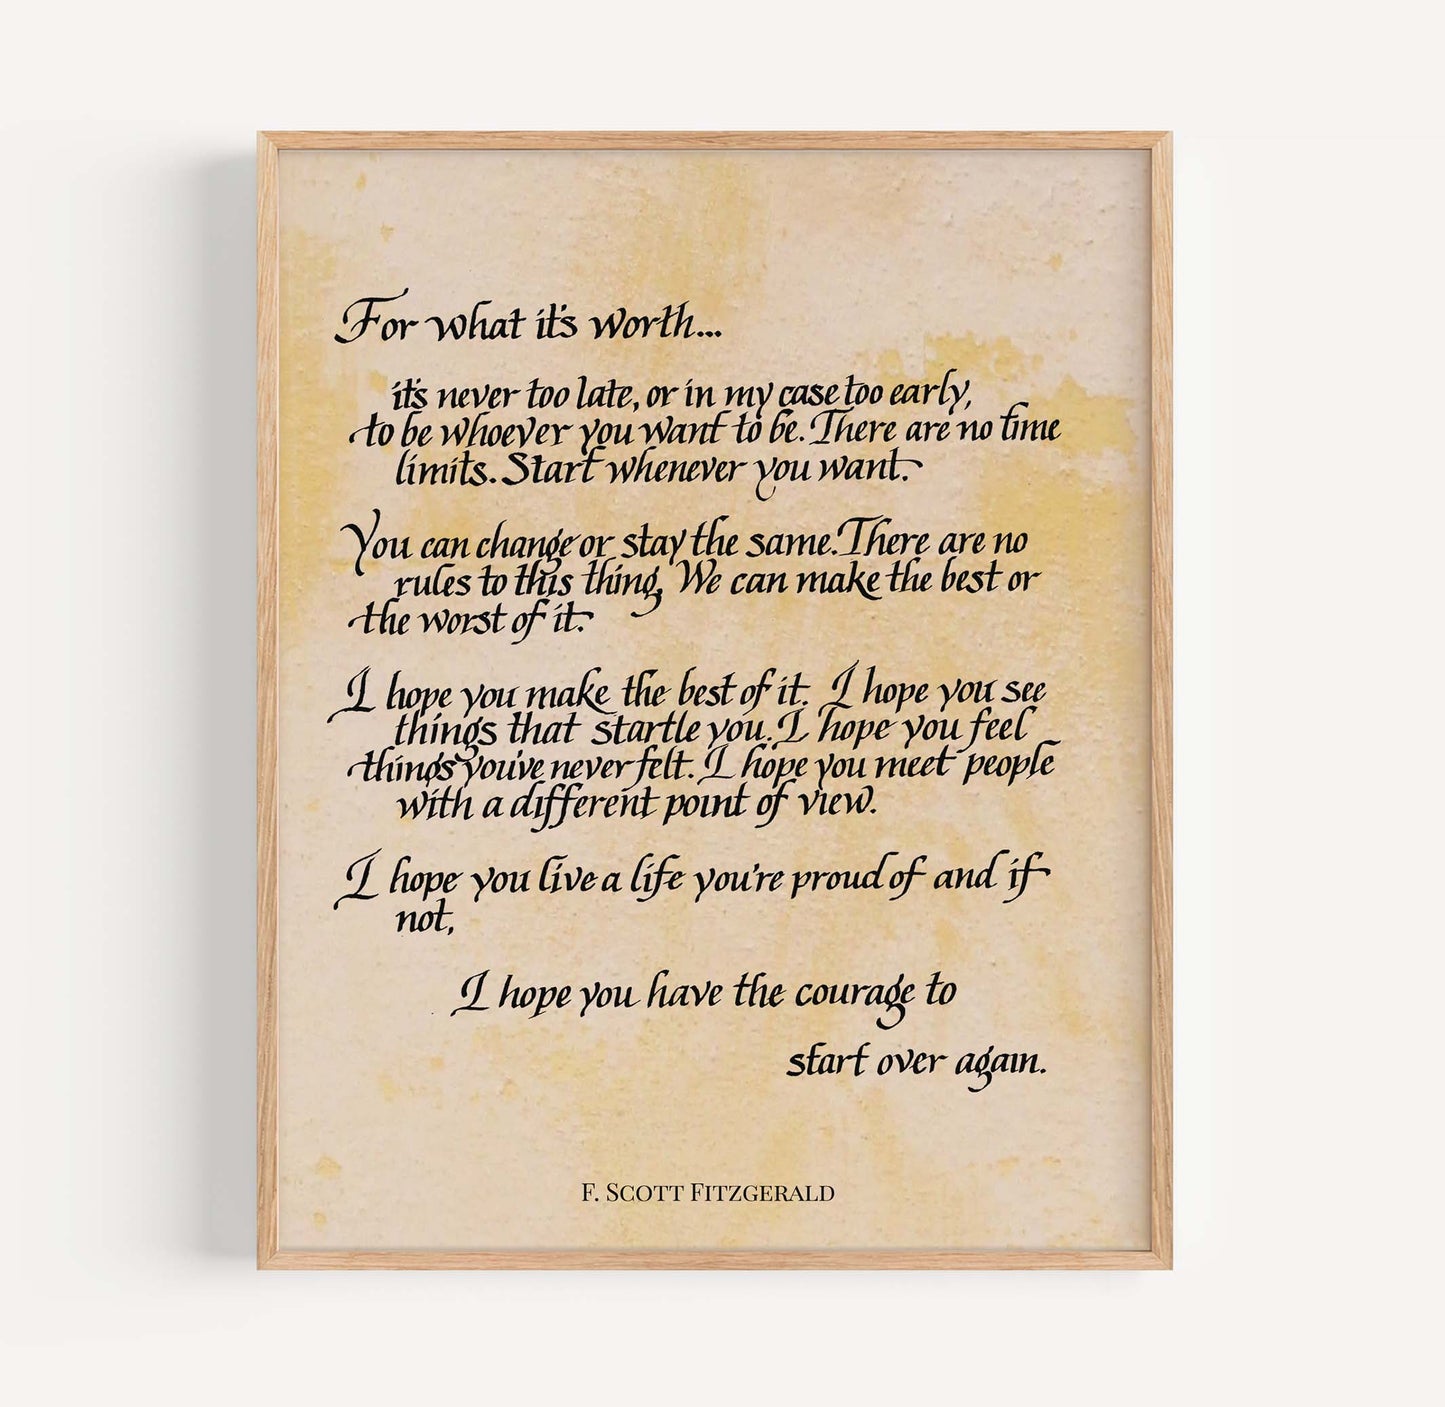 For what it's worth...
it's never too late, or in my case too early,
to be whoever you want to be. There are no time
limits. Start whenever you want.
You can change or stay the same. There are no
rules to this thing, We can make the best or
the worst of it.
I hope you make the best of it. I hope you see
things that startle you. I hope you feel
things you've never felt. I hope you meet people
with a different point of view.
I hope you live a life you're proud of and if
not,
I hope you have the courage to
start over again.
F. Scott Fitzgerald